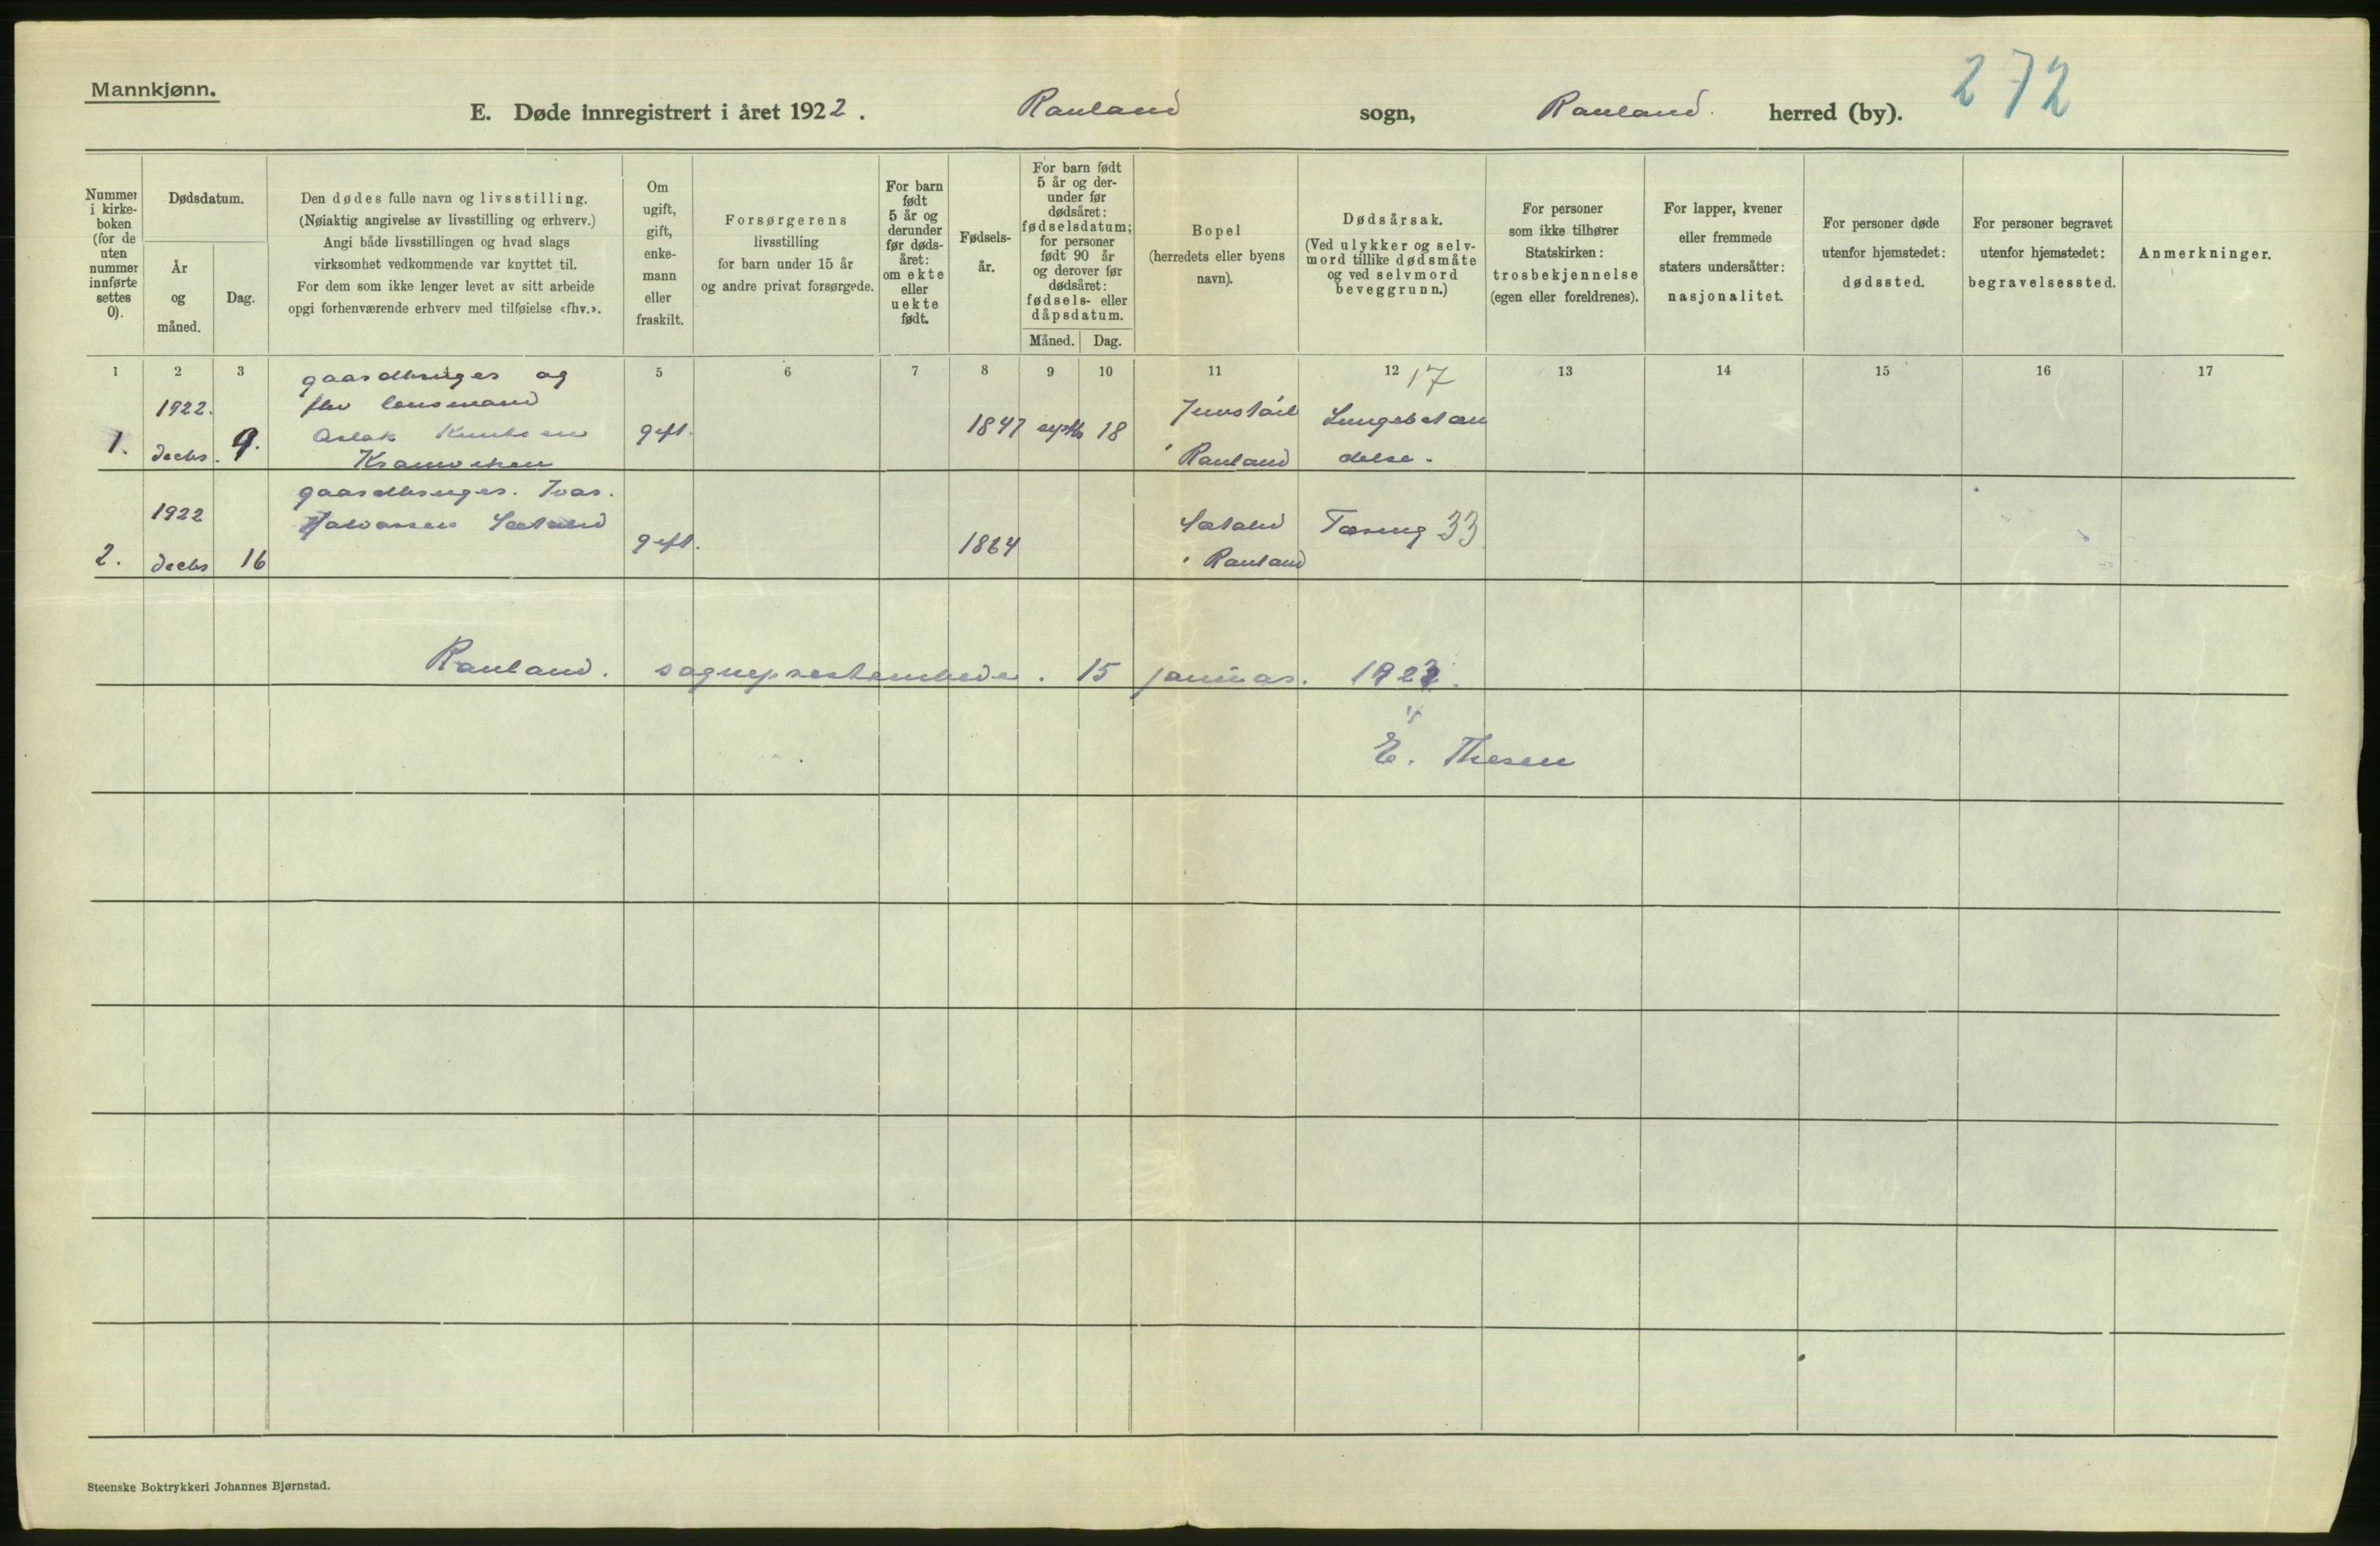 Mannkjønn.
E. Døde innregistrert i året 1922. Rauland sogn, Rauland. herred (by). 272
Nummer i kirke-boken (for de uten nummer innførte settes 0).
Dødsdatum.
År og måned.
Dag.
Den dødes fulle navn og livsstilling.
(Nøiaktig angivelse av livsstilling og erhverv.)
Angi både livsstillingen og hvad slags
virksomhet vedkommende var knyttet til.
For dem som ikke lenger levet av sitt arbeide
opgi forhenværende erhverv med tilføielse «fhv.».
Om ugift, gift, enke-mann eller fraskilt.
Forsørgerens
livsstilling
for barn under 15 år
og andre privat forsørgede.
For barn født 5 år og derunder før døds-året: om ekte eller uekte født.
Fødsels-år.
For barn født 5 år og der-under før dødsåret: fødselsdatum; for personer født 90 år og derover før dødsåret: fødsels- eller dåpsdatum.
Måned. Dag.
Bopel
(herredets eller byens
navn).
Dødsårsak.
(Ved ulykker og selv-
mord tillike dødsmåte
og ved selvmord
beveggrunn.)
For personer
som ikke tilhører
Statskirken:
trosbekjennelse
(egen eller foreldrenes).
For lapper, kvener
eller fremmede
staters undersåtter:
nasjonalitet.
For personer døde
utenfor hjemstedet:
dødssted.
For personer begravet
utenfor hjemstedet:
begravelsessted.
Anmerkninger.
1 2 3 5 6 7 8 9 10 11 12 13 14 15 16 17
gaardbruger og
fhv lensmand
Aslak Knutsen
1. 1922. decbr. 9. gift. 1847 septb 18 Rauland Lungebetæn
delse. 17
gaardbruger. Ivar.
Halvorsen
2. 1922 decbr 16 gift. 1864 Rauland Tæring 33
Rauland. sogneprestembede. 15 januar. 1923.
E. Thesen
Steenske Boktrykkeri Johannes Bjørnstad.